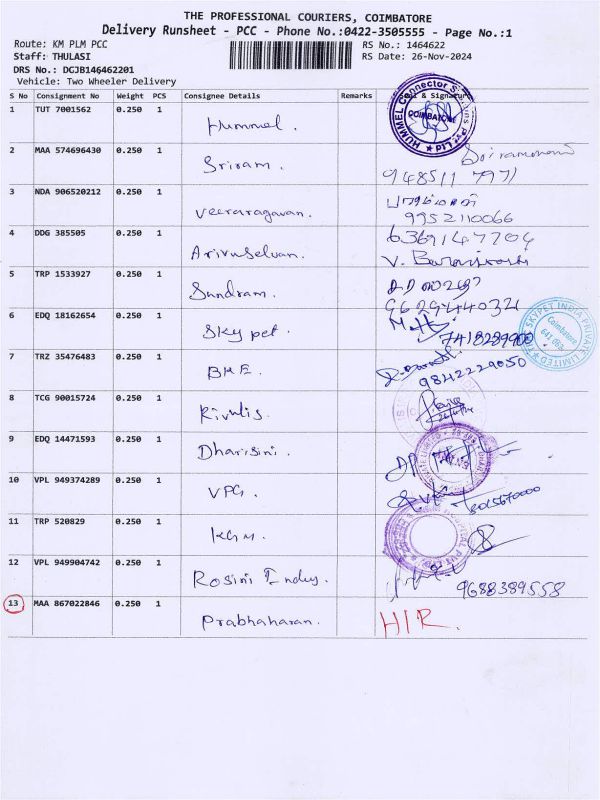 THE PROFESSIONAL COURIERS, COIMBATORE
Delivery Runsheet - PCC - Phone No.:0422-3505555 - Page No.:1
Route: KM PLM PCC
RS No.: 1464622
Staff: THULASI
RS Date: 26-Nov-2024
DRS No.: DGJB146462201
Vehicle: Two Wheeler Delivery
S No Consignment No Weight PCS Consignee Details Remarks Seal & Signature
1 TUT 7001562 0.250 1 Hummel.
HUMMEL Connector Pvt Ltd
COIMBATORE
2 MAA 574696430 0.250 1 Sriram.
94851 1 7971
3 NDA 906520212 0.250 1 Veeraragavan.
9952110066
4 DDG 385505 0.250 1 Arivuselvan.
6369147704
5 TRP 1533927 0.250 1 Sundram.
9629440321
6 EDQ 18162654 0.250 1 Sky pet.
7418289900
SKYPET INDIA PRIVATE LIMITED
Coimbatore
7 TRZ 35476483 0.250 1 BME.
9842229050
8 TCG 90015724 0.250 1 Rivulis.
9 EDQ 14471593 0.250 1 Dharisini.
10 VPL 949374289 0.250 1 VPG.
8015670000
11 TRP 520829 0.250 1 KGM.
12 VPL 949904742 0.250 1 Rosini Indus.
9688389558
13 MAA 867022846 0.250 1 Prabhaharan.
HIR.